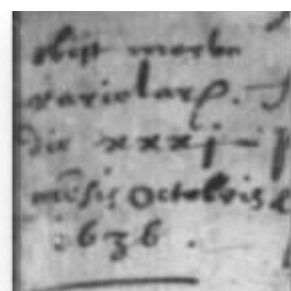 obijt morbo
variolarꝝ.
die xxxj
mēsis Octobris
1636.